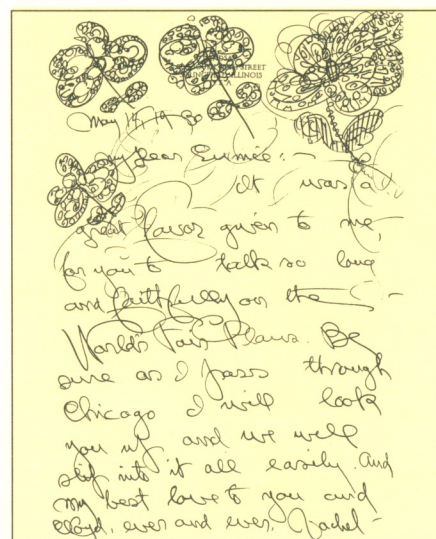 STREET
ILLINOIS
A
May 14, 19
My dear Eunice: –
It was a
great favor given to me,
for you to talk so long
and faithfully on the –
World's Fair Plans. Be
sure as I pass through
Chicago I will look
you up, and we will
slip into it all easily. And
my best love to you and
Lloyd, ever and ever, Rachel –